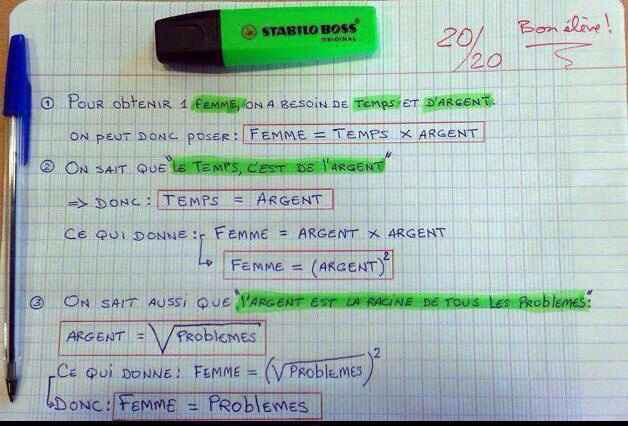 STABILO BOSS
ORIGINAL
20/20
Bon élève!
① POUR ObTENIR 1 FEMME, ON A bESOIN DE TEMPS ET D'ARGENT.
ON PEUT DONC POSER: FEMME = TEMPS X ARGENT
② ON SAIT QUE "LE TEMPS, C'EST DE l'ARGENT"
=> DONC: TEMPS = ARGENT
CE QUI DONNE: FEMME = ARGENT X ARGENT
↳ FEMME = (ARGENT)²
③ ON SAIT AUSSI QUE "l'ARGENT EST LA RACINE DE TOUS LES PROblEMES":
ARGENT = √PROblEMES
CE QUI DONNE: FEMME = (√PROblEMES)²
DONC: FEMME = PROblEMES